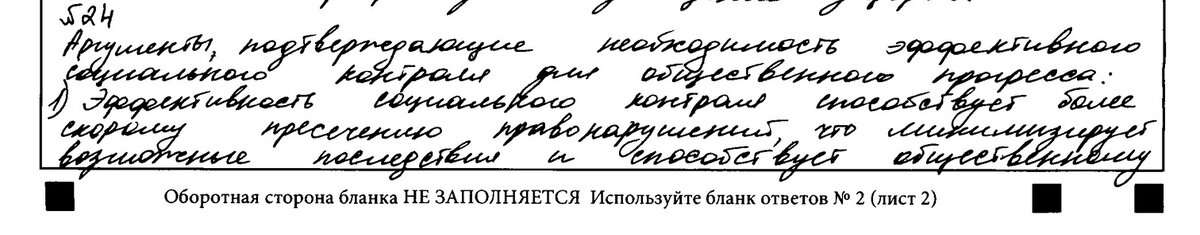 №24
Аргументы, подтверждающие необходимость эффективного
социального контроля для общественного прогресса:
1) Эффективность социального контроля способствует более
скорому пресечению правонарушений, что минимизирует
возможные последствия и способствует общественному
Оборотная сторона бланка НЕ ЗАПОЛНЯЕТСЯ Используйте бланк ответов № 2 (лист 2)